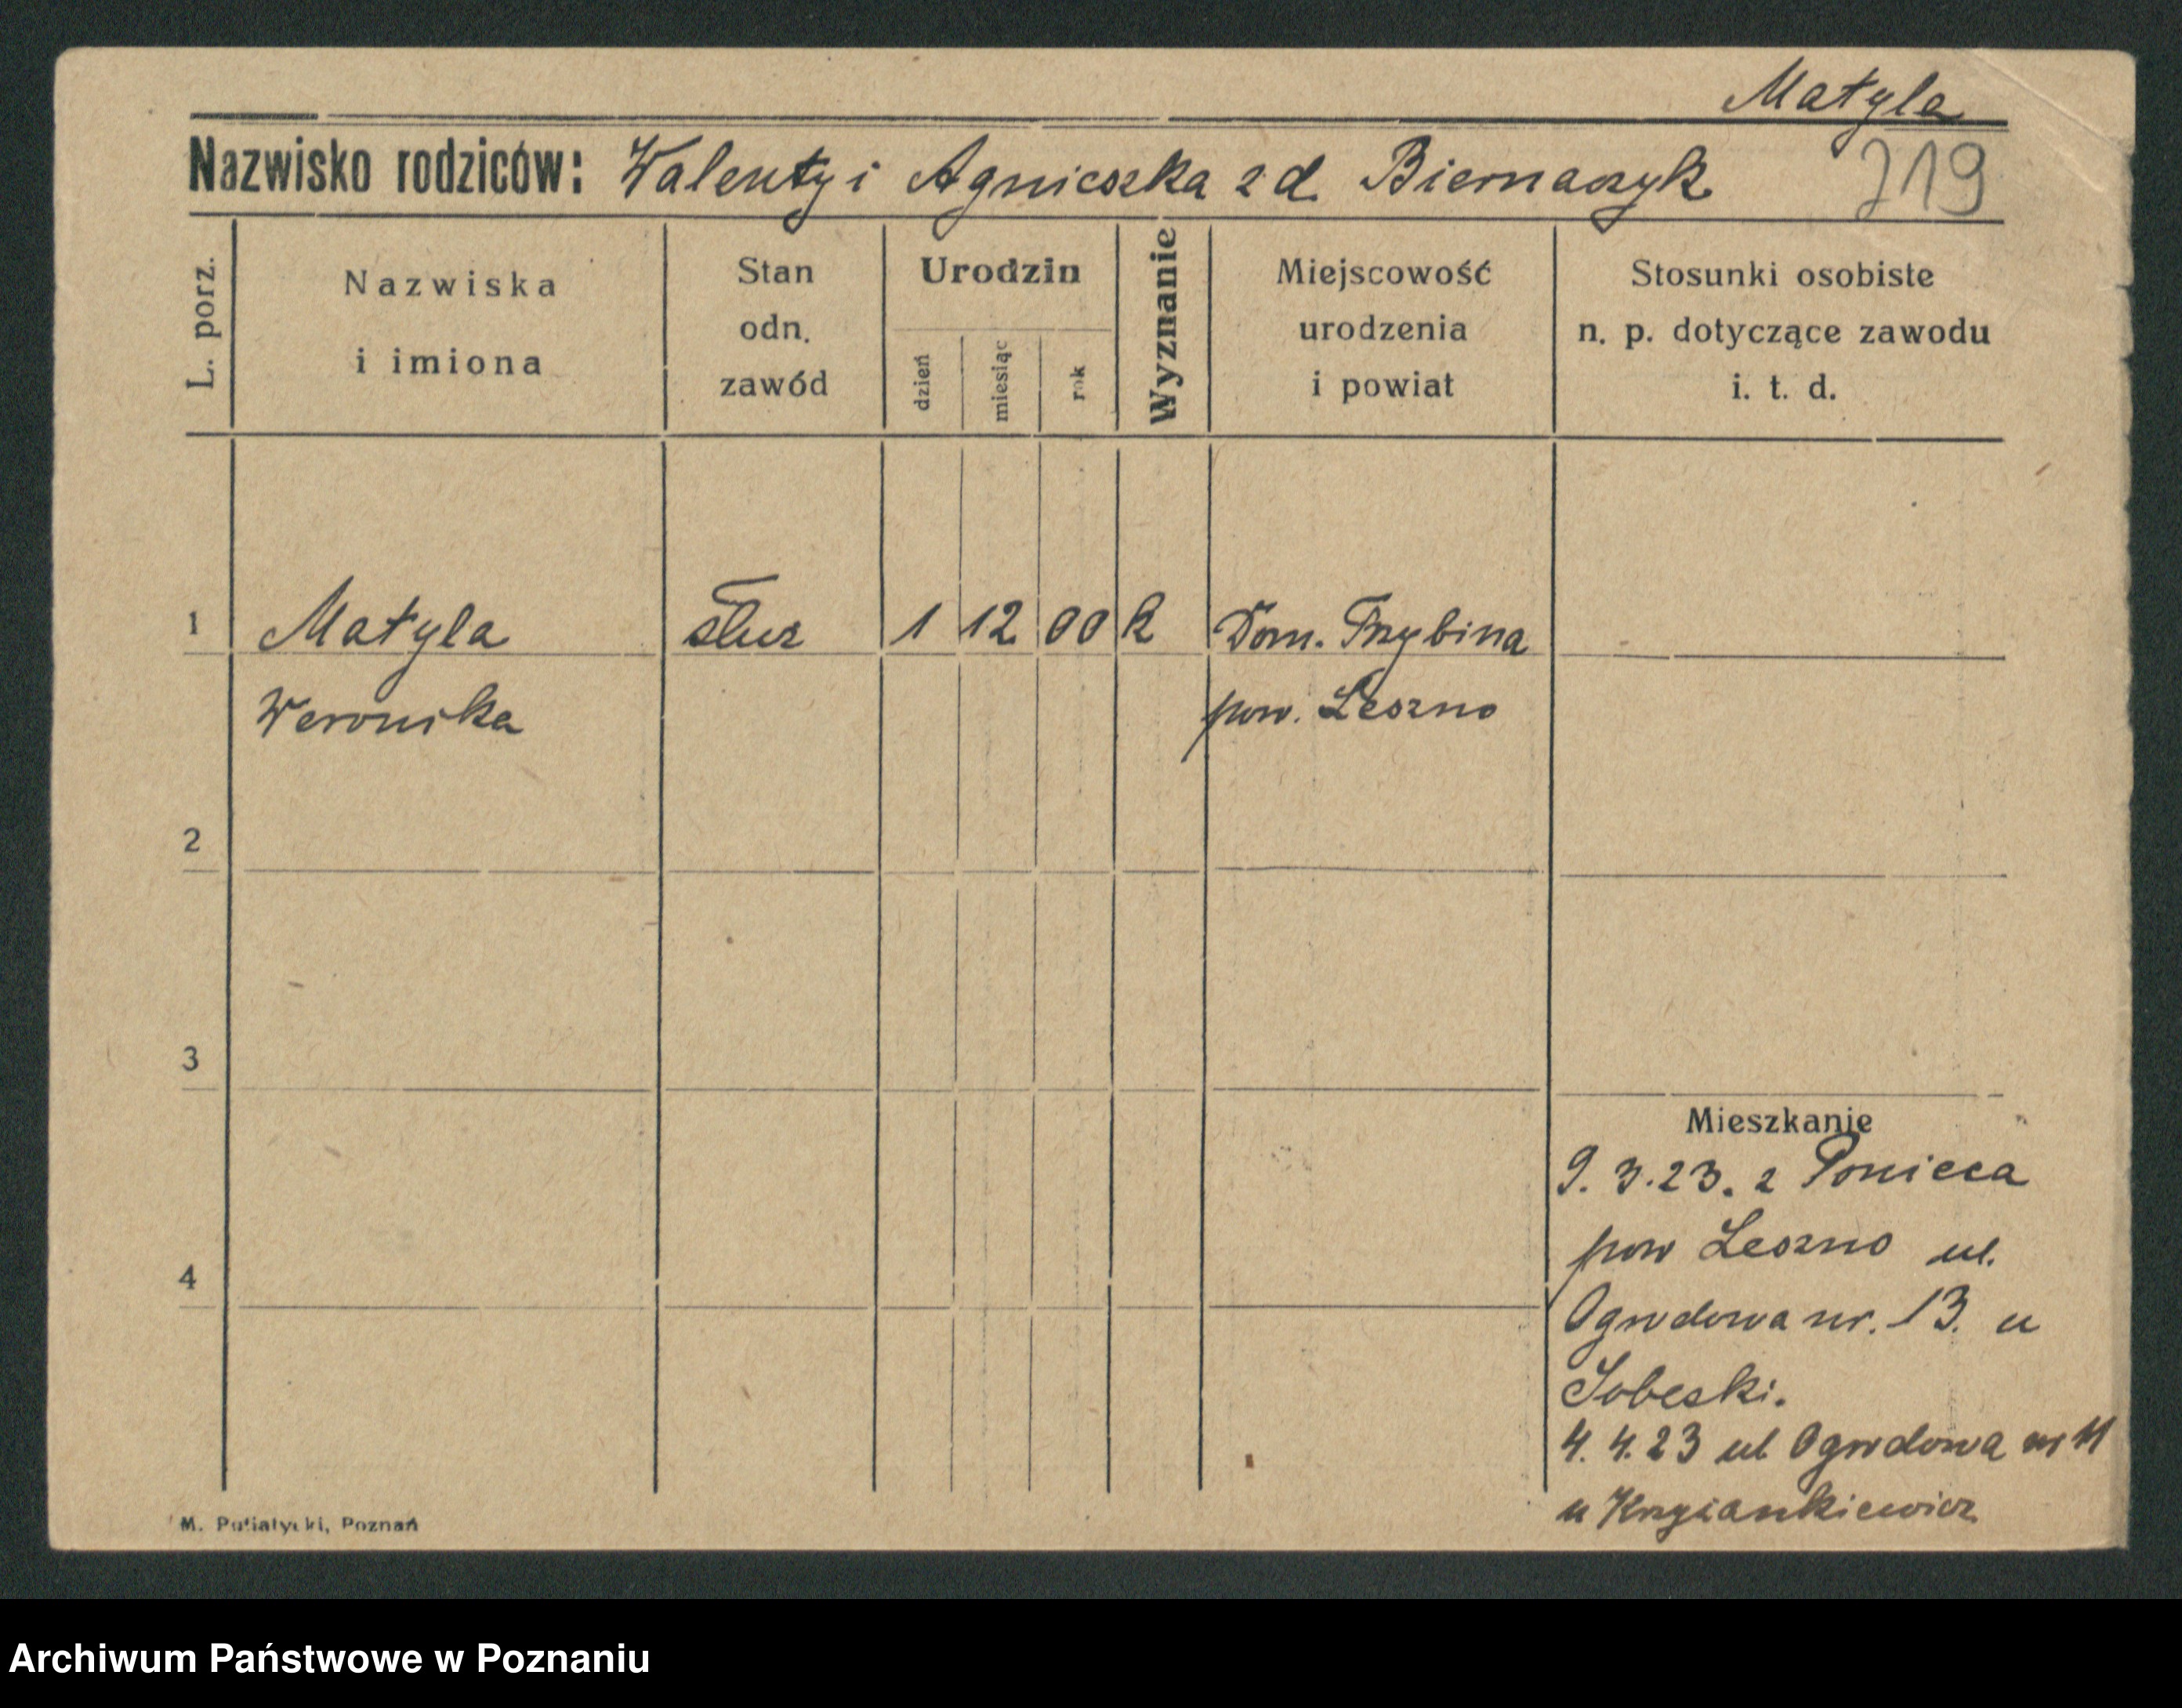 Matyla
Nazwisko rodziców: Walenty i Agnieszka z d. Biernaczyk
719
L. porz.
Nazwiska
i imiona
Stan
odn.
zawód
Urodzin
dzień
miesiąc
rok
Wyznanie
Miejscowość
urodzenia
i powiat
Stosunki osobiste
n. p. dotyczące zawodu
i. t. d.
1 Matyla służ 1 12 00 k Dom. Trzybina
Weronika pow. Leszno
2
3
4
Mieszkanie
9. 3. 23. z Ponieca
pow Leszno ul.
Ogrodowa nr. 13. u
Sobeski.
4. 4. 23 ul Ogrodowa nr 11
u Krzyżankiewicz
M. Putiatycki, Poznań
Archiwum Państwowe w Poznaniu